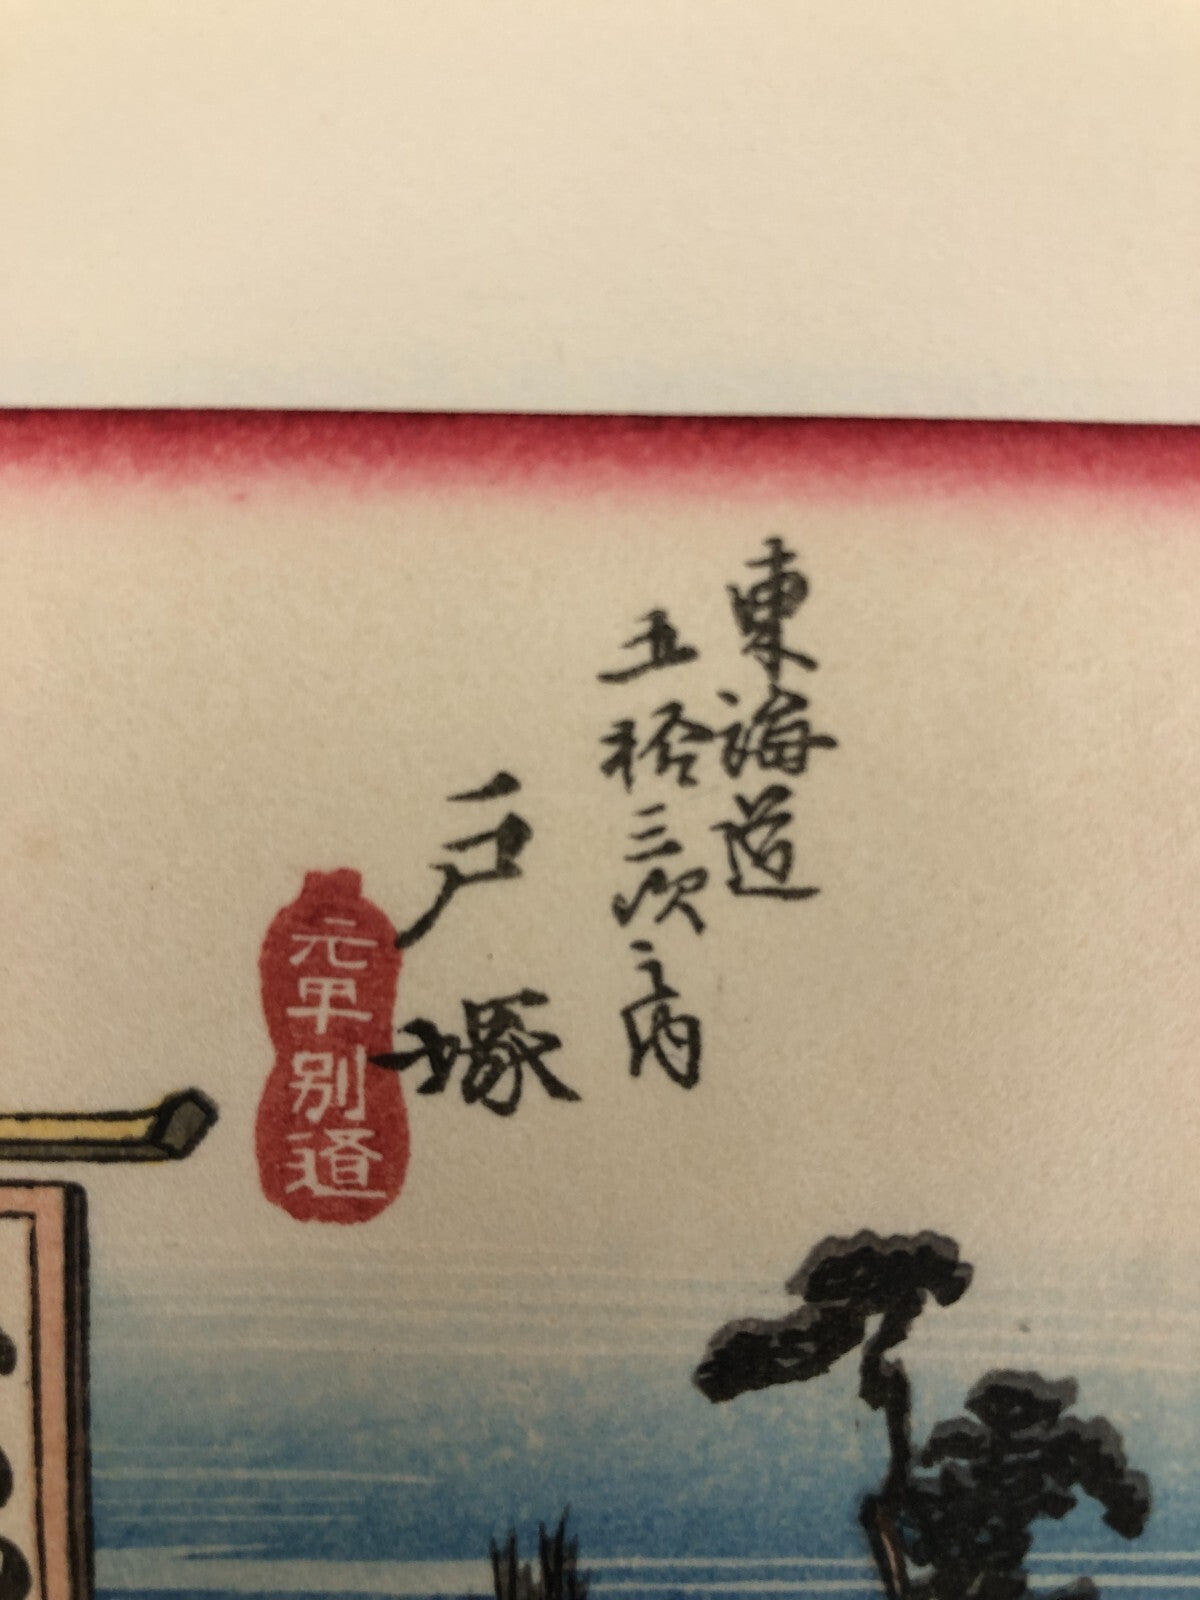 東海道
五拾三次之内
戸塚
元町別道